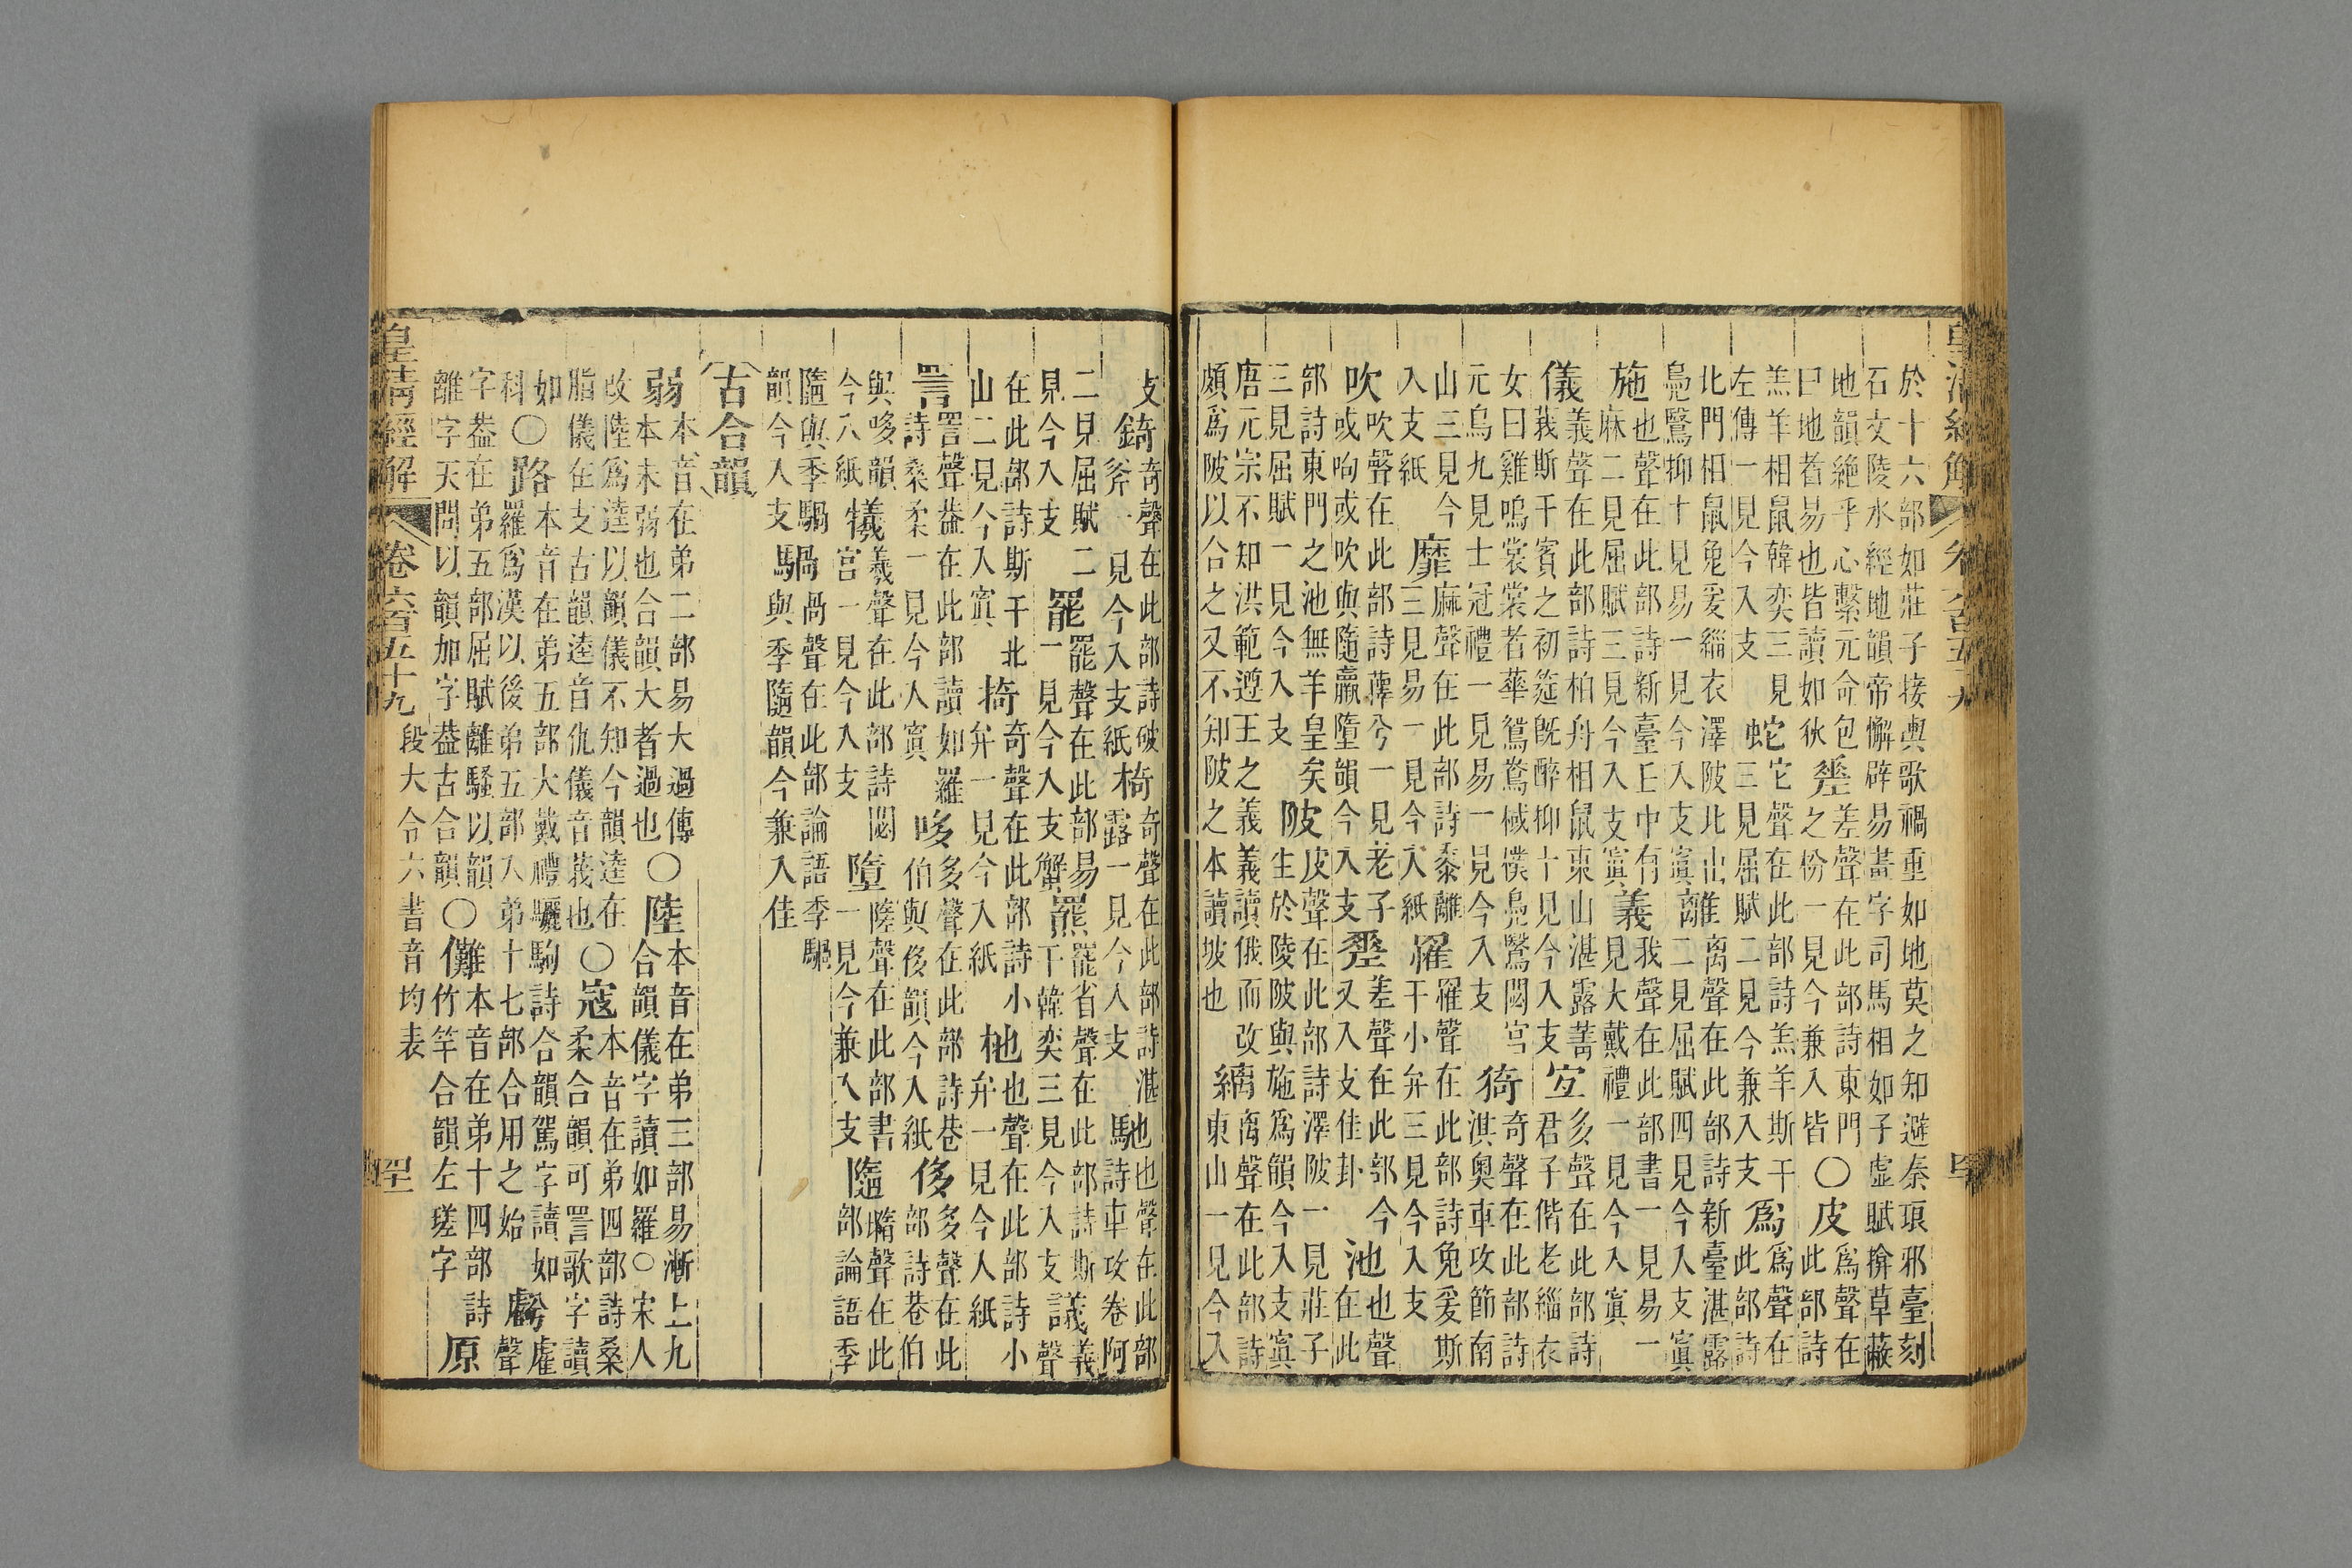 於十六部如莊子接輿歌禍重如地莫之知避秦琅邪臺刻
石文陵水經地韻帝懈辟易畫字司馬相如子虛賦揜草蔽
地韻絶乎心繫元命包
曰地者易也皆讀如狄
差聲在此部詩東門
之枌一見今兼入皆
○皮
爲聲在
此部詩
羔羊相鼠韓奕三見
左傳一見今入支
蛇
它聲在此部詩羔羊斯干
三見屈賦二見今兼入支
爲
爲聲在
此部詩
北門相鼠兔爰緇衣澤陂北山
鳧鷖抑十見易一見今入支寘
離
离聲在此部詩新臺湛露
二見屈賦四見今入支寘
施
也聲在此部詩新臺丘中有
麻二見屈賦三見今入支寘
義
我聲在此部書一見易一
見大戴禮一見今入寘
儀
義聲在此部詩柏舟相鼠東山湛露菁
莪斯干賓之初筵旣醉抑十見今入支
宐
多聲在此部詩
君子偕老緇衣
女曰雞鳴裳裳者華鴛鴦棫樸鳧鷖閟宮
元鳥九見士冠禮一見易一見今入支
猗
奇聲在此部詩
淇奧車攻節南
山三見今
入支紙
靡
麻聲在此部詩黍離
三見易一見今入紙
罹
羅聲在此部詩兔爰斯
干小弁三見今入支
吹
吹聲在此部詩蘀兮一見老子
或呴或吹與隨羸墮韻今入支
差聲在此部今
又入支佳卦
池
也聲
在此
部詩東門之池無羊皇矣
三見屈賦一見今入支
陂
皮聲在此部詩澤陂一見莊子
生於陵陂與施爲韻今入支寘
唐元宗不知洪範遵王之義義讀俄而改
頗爲陂以合之又不知陂之本讀坡也
縭
离聲在此部詩
東山一見今入
支
錡
奇聲在此部詩破
斧一見今入支紙
椅
奇聲在此部詩湛
露一見今入支
馳
也聲在此部
詩車攻卷阿
二見屈賦二
見今入支
罷
罷聲在此部易
一見今入支蟹
羆
罷省聲在此部詩斯
干韓奕三見今入支
議
義
聲
在此部詩斯干北
山二見今入寘
掎
奇聲在此部詩小
弁一見今入紙
杝
也聲在此部詩小
弁一見今入紙
詈
詈聲葢在此部讀如羅
詩桑柔一見今入寘
哆
多聲在此部詩巷
伯與侈韻今入紙
侈
多聲在此
部詩巷伯
與哆韻
今入紙
犧
羲聲在此部詩閟
宮一見今入支
墮
隓聲在此部書
一見今兼入支
隨
聲在此
部論語季
隨與季騧
韻今入支
騧
咼聲在此部論語季騧
與季隨韻今兼入佳
古合韻
弱
本音在弟二部易大過傳
本末弱也合韻大者過也
○陸
本音在弟三部易漸上九
合韻儀字讀如羅○宋人
改陸爲逵以韻儀不知今韻逵在
脂儀在支古韻逵音仇儀音莪也
○寇
本音在弟四部詩桑
柔合韻可詈歌字讀
如
科
○路
本音在弟五部大戴禮驪駒詩合韻駕字讀如
羅爲漢以後弟五部入弟十七部合用之始
虧
兮虗
聲
字葢在弟五部屈賦離騷以韻
離字天問以韻加字葢古合韻
○儺
本音在弟十四部詩
竹竿合韻左瑳字
原
皇清經解
卷六百五十九
段大令六書音均表
皇清經解